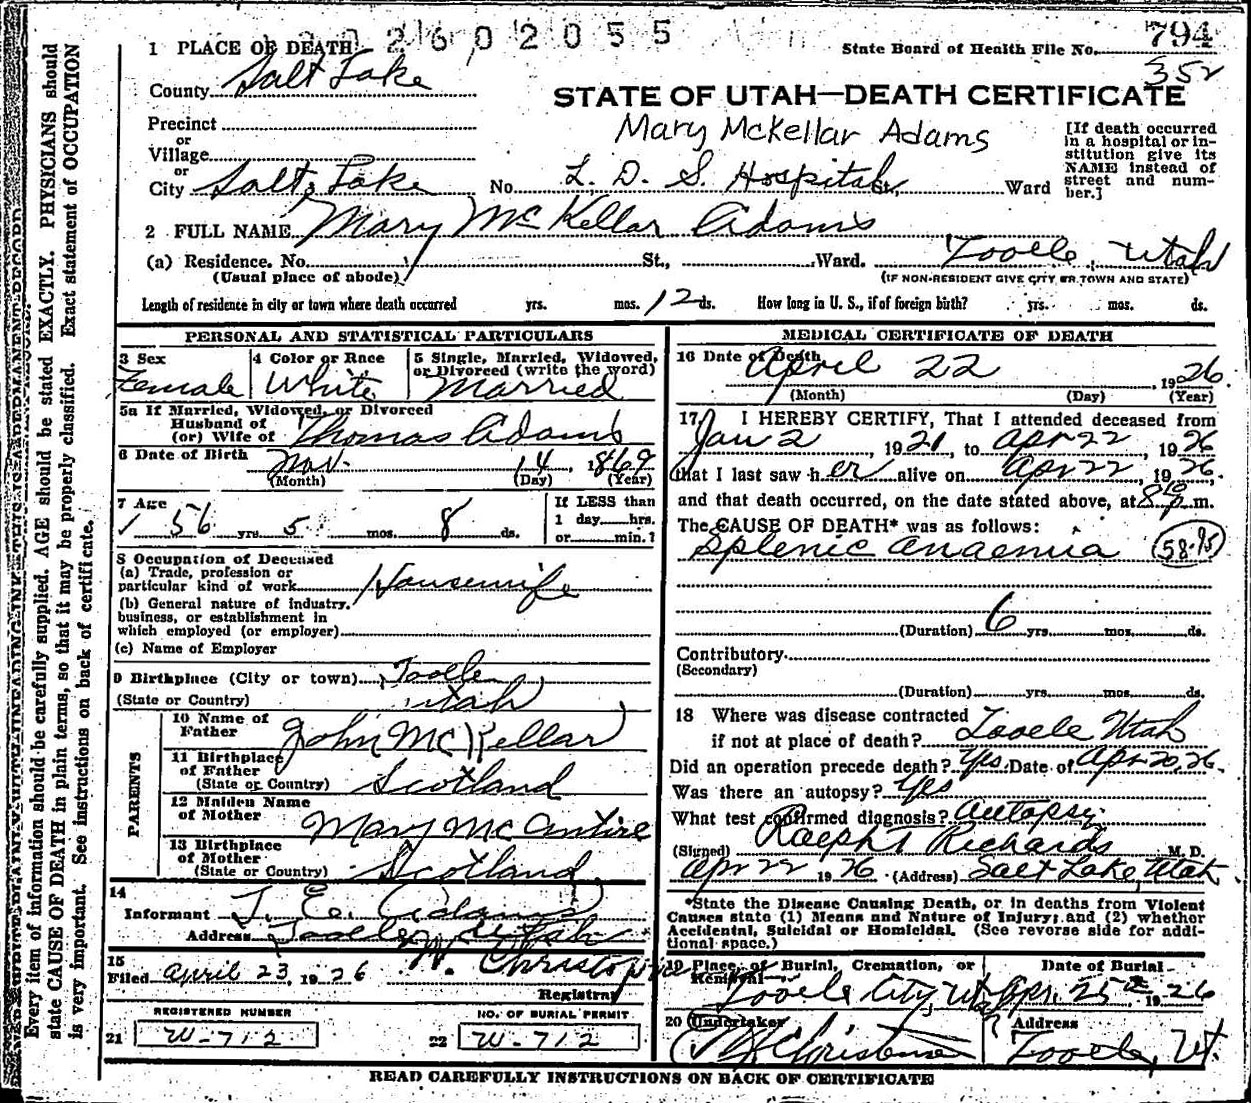 2602055
State Board of Health File No. 794
352
1 PLACE OF DEATH
County Salt Lake
STATE OF UTAH—DEATH CERTIFICATE
Mary McKellar Adams
Precinct
or
Village
or
City Salt Lake No. L. D. S. Hospital St., Ward
[If death occurred
in a hospital or in-
stitution give its
NAME instead of
street and num-
ber.]
2 FULL NAME Mary McKellar Adams
(a) Residence. No. St., Ward. Tooele, Utah
(Usual place of abode) (IF NON-RESIDENT GIVE CITY OR TOWN AND STATE)
Length of residence in city or town where death occurred yrs. mos. 12 ds. How long in U. S., if of foreign birth? yrs. mos. ds.
PERSONAL AND STATISTICAL PARTICULARS
3 Sex Female
4 Color or Race White
5 Single, Married, Widowed,
or Divorced (write the word)
Married
5a If Married, Widowed, or Divorced
Husband of
(or) Wife of Thomas Adams
6 Date of Birth Nov. 14, 1869
(Month) (Day) (Year)
7 Age
56 yrs. 5 mos. 8 ds.
If LESS than
1 day hrs.
or min.?
8 Occupation of Deceased
(a) Trade, profession or
particular kind of work Housewife
(b) General nature of industry,
business, or establishment in
which employed (or employer)
(c) Name of Employer
9 Birthplace (City or town) Tooele
(State or Country) Utah
PARENTS
10 Name of
Father John McKellar
11 Birthplace
of Father
(State or Country) Scotland
12 Maiden Name
of Mother Mary McAntire
13 Birthplace
of Mother
(State or Country) Scotland
14
Informant T. E. Adams
Address Tooele, Utah
15
Filed April 23, 1926 W. Christopherson
Registrar
REGISTERED NUMBER
21 W-712
NO. OF BURIAL PERMIT
22 W-712
MEDICAL CERTIFICATE OF DEATH
16 Date of Death
April 22, 1926
(Month) (Day) (Year)
17 I HEREBY CERTIFY, That I attended deceased from
Jan 2, 1921, to Apr 22, 1926
that I last saw her alive on Apr 22, 1926,
and that death occurred, on the date stated above, at 8 10 p.m.
The CAUSE OF DEATH* was as follows:
Splenic Anaemia
(Duration) 6 yrs. mos. ds.
Contributory
(Secondary)
(Duration) yrs. mos. ds.
18 Where was disease contracted
if not at place of death? Tooele Utah
Did an operation precede death? Yes. Date of Apr 20, 26.
Was there an autopsy? Yes
What test confirmed diagnosis? Autopsy
(Signed) Ralph T Richards M. D.
Apr 22 1926 (Address) Salt Lake, Utah.
*State the Disease Causing Death, or in deaths from Violent
Causes state (1) Means and Nature of Injury; and (2) whether
Accidental, Suicidal or Homicidal. (See reverse side for addi-
tional space.)
19 Place of Burial, Cremation, or
Removal
Tooele City, Utah
Date of Burial
Apr. 25th 1926
20 Undertaker
Address
Tooele, Ut.
READ CAREFULLY INSTRUCTIONS ON BACK OF CERTIFICATE
Every item of information should be carefully supplied. AGE should be stated EXACTLY. PHYSICIANS should
state CAUSE OF DEATH in plain terms, so that it may be properly classified. Exact statement of OCCUPATION
is very important. See instructions on back of certificate.